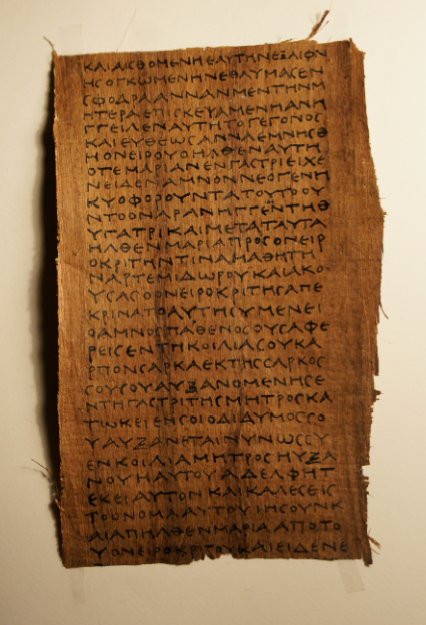 ΚΑΙΑΙΣΘΟΜΕΝΗΕΑΥΤΗΝΕΞΑΙΦΝ
ΗϹΟΓΚΩΜΕΝΗΝΕΘΑΥΜΑϹΕΝ
ϹΦΟΔΡΑΑΝΝΑΝΜΕΝΤΗΝΜ
ΗΤΕΡΑΕΠΙϹΚΕΨΑΜΕΝΗΑΝΗ
ΓΓΕΙΛΕΝΑΥΤΗΤΟΓΕΓΟΝΟϹ
ΚΑΙΕΥΘΕΩϹΑΝΝΑΕΜΝΗϹΘ
ΗΟΝΕΙΡΟΥΟΗΛΘΕΝΑΥΤΗ
ΟΤΕΜΑΡΙΑΝΕΝΓΑϹΤΡΙΕΙΧΕ
ΝΕΙΔΕΝΑΜΝΟΝΝΕΟΓΕΝΗ
ΚΥΟΦΟΡΟΥΝΤΑΤΟΥΤΟΟΥ
ΝΤΟΟΝΑΡΑΝΗΓΓΕΙΛΕΝΤΗΘ
ΥΓΑΤΡΙΚΑΙΜΕΤΑΤΑΥΤΑ
ΗΛΘΕΝΜΑΡΙΑΠΡΟϹΟΝΕΙΡ
ΟΚΡΙΤΗΝΤΙΝΑΜΑΘΗΤΗ
ΝΑΡΤΕΜΙΔΩΡΟΥΚΑΙΑΚΟ
ΥϹΑϹΟΟΝΕΙΡΟΚΡΙΤΗϹΑΠΕ
ΚΡΙΝΑΤΟΑΥΤΗϹΥΜΕΝΕΙ
ΟΑΜΝΟϹΠΑΘΕΝΟϹΟΥϹΑΦΕ
ΡΕΙϹΕΝΤΗΚΟΙΛΙΑϹΟΥΚΑ
ΡΠΟΝϹΑΡΚΑΕΚΤΗϹϹΑΡΚΟϹ
ϹΟΥϹΟΥΑΥΞΑΝΟΜΕΝΗϹΕ
ΝΤΗΓΑϹΤΡΙΤΗϹΜΗΤΡΟϹΚΑ
ΤΩΚΕΙΕΝϹΟΙΟΔΙΔΥΜΟϹϹΟ
ΥΑΥΞΑΝΕΤΑΙΝΥΝΩϹϹΥ
ΕΝΚΟΙΛΙΑΜΗΤΡΟϹΗΥΞΑ
ΝΟΥΗΑΥΤΟΥΑΔΕΛΦΗΤ
ΕΚΕΙΑΥΤΟΝΚΑΙΚΑΛΕϹΕΙϹ
ΤΟΥΝΟΜΑΑΥΤΟΥΙΗϹΟΥΝΚ
ΑΙΑΠΗΛΘΕΝΜΑΡΙΑΑΠΟΤΟ
ΥΟΝΕΙΡΟΚΡΙΤΟΥΚΑΙΕΙΔΕΝΕ